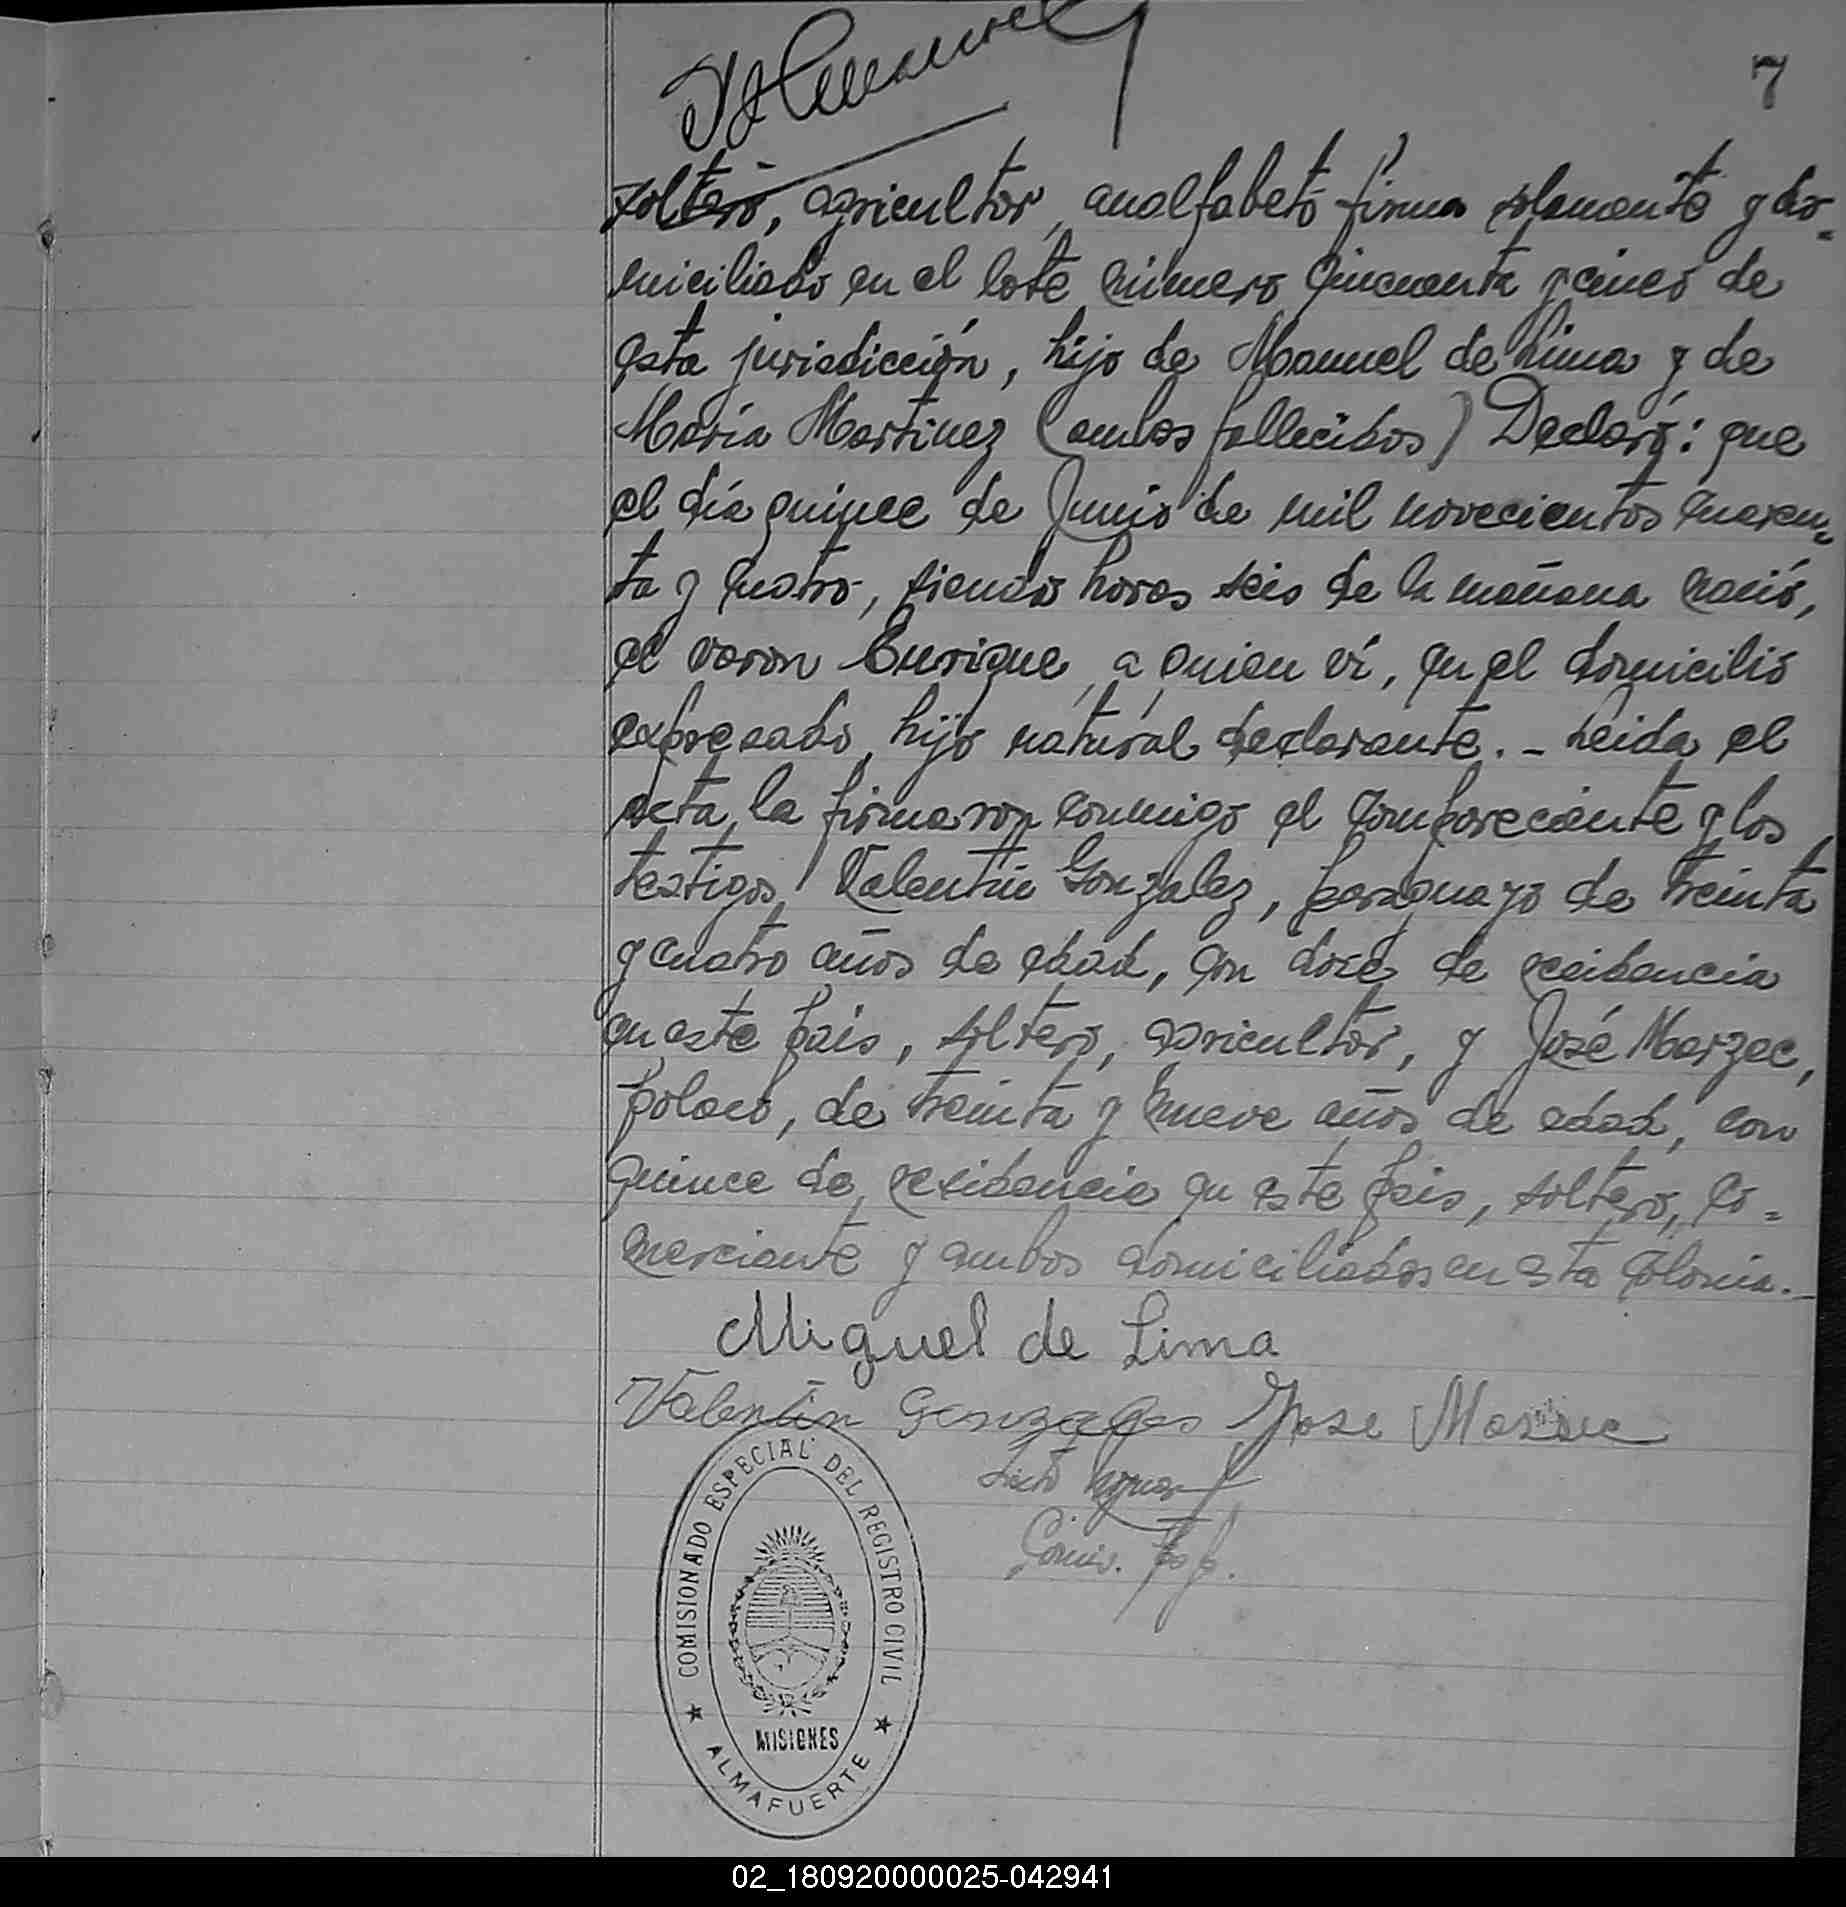 7
soltero, agricultor, analfabeto firma solamente y do=
miciliado en el lote número cincuenta y cinco de
esta jurisdicción, hijo de Manuel de Lima y de
María Martinez (ambos fallecidos) Declaró: que
el día quince de Junio de mil novecientos cuaren=
ta y cuatro, siendo horas seis de la mañana nació,
el varon Enrique, a quien ví, en el domicilio
expresado, hijo natural declarante. - Leida el
acta, la firmaron conmigo el compareciente y los
testigos, Valentín Gonzalez, paraguayo de treinta
y cuatro años de edad, con doce de residencia
en este pais, soltero, agricultor, y José Marzec,
polaco, de treinta y nueve años de edad, con
quince de residencia en este pais, soltero, co=
merciante y ambos domiciliados en esta Colonia.-
Miguel de Lima
Valentín Gonzales Jose Marzec
COMISIONADO ESPECIAL DEL REGISTRO CIVIL
MISIONES
ALMAFUERTE
02_180920000025-042941